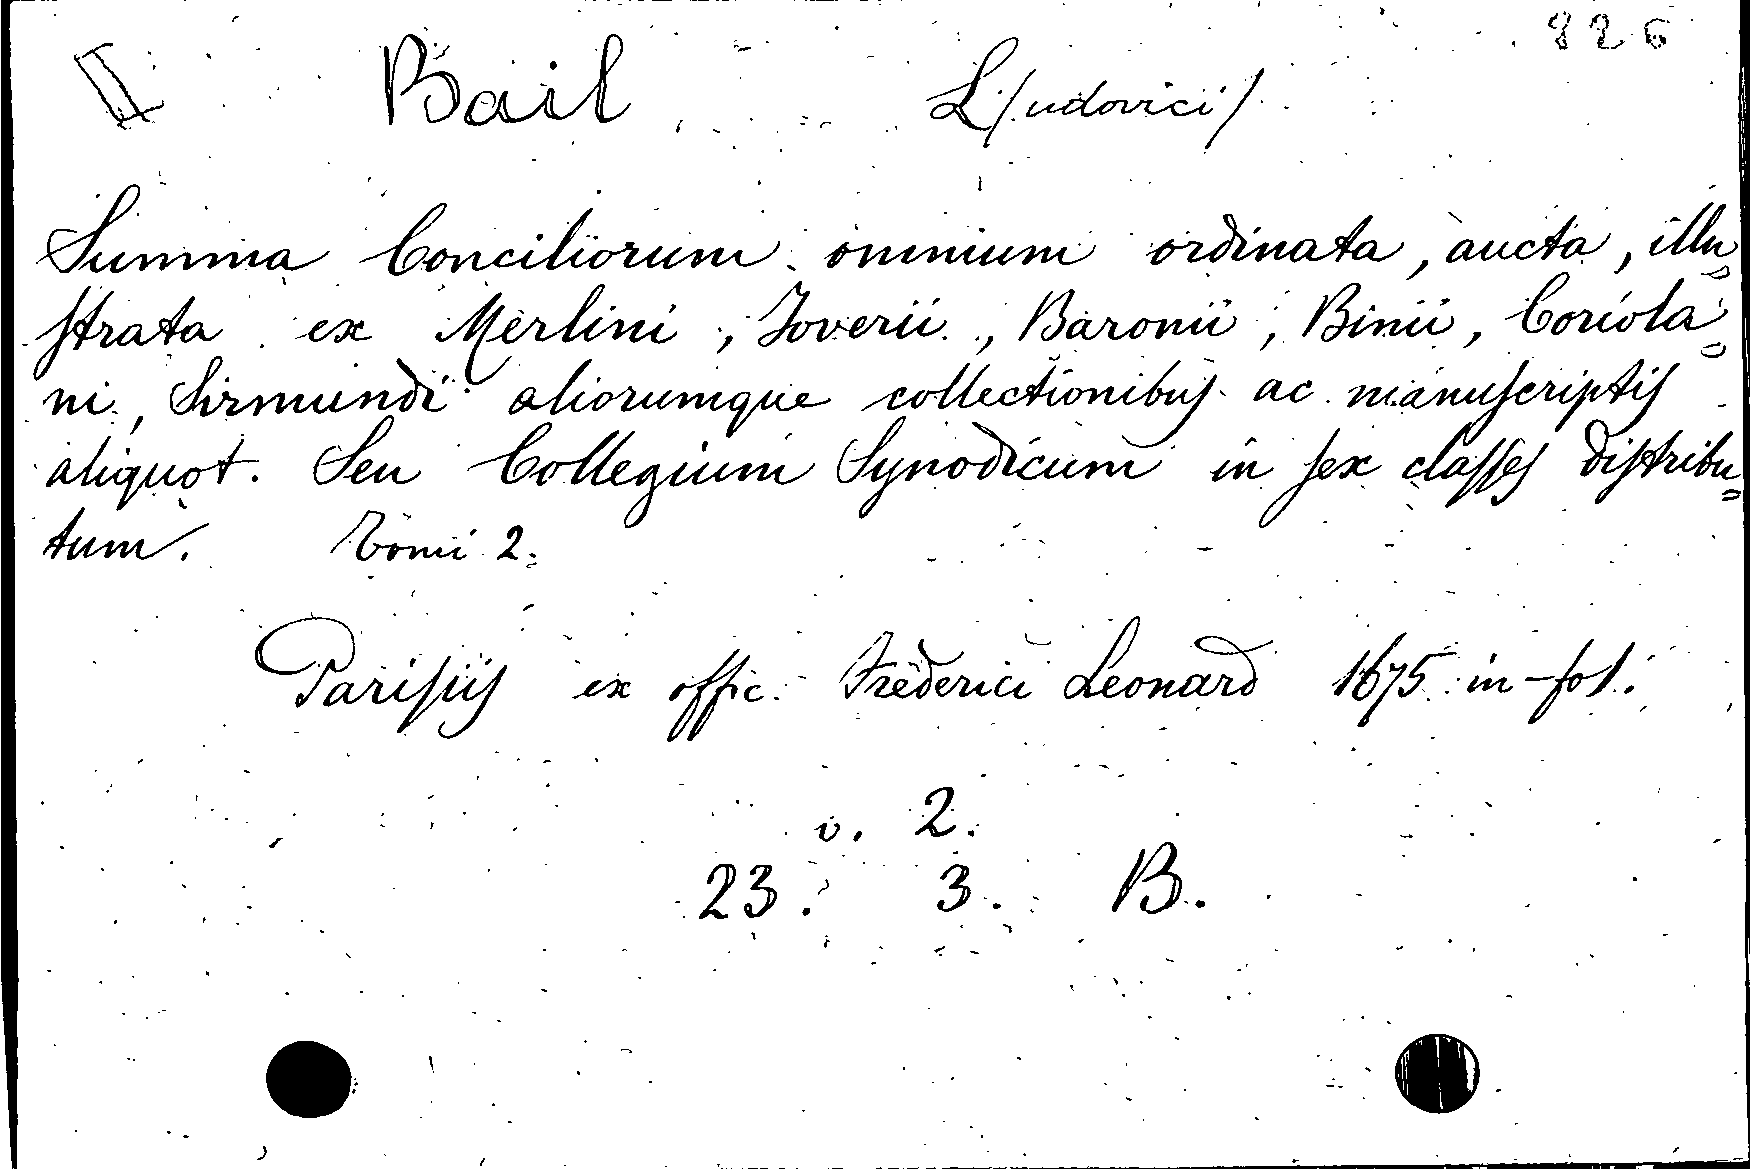 826
II Bail L/udovici/
Summa Conciliorum omnium ordinata, aucta, illu=
strata ex Merlini, Joverii, Baronii, Binii, Coriola=
ni, Sirmundi aliorumque collectionibus ac manuscriptis
aliquot. Seu Collegium Synodicum in sex classes distribu=
tum. Tomi 2.
Parisiis ex offic. Frederici Leonard 1675 in-fol.
v. 2.
23. 3. B.